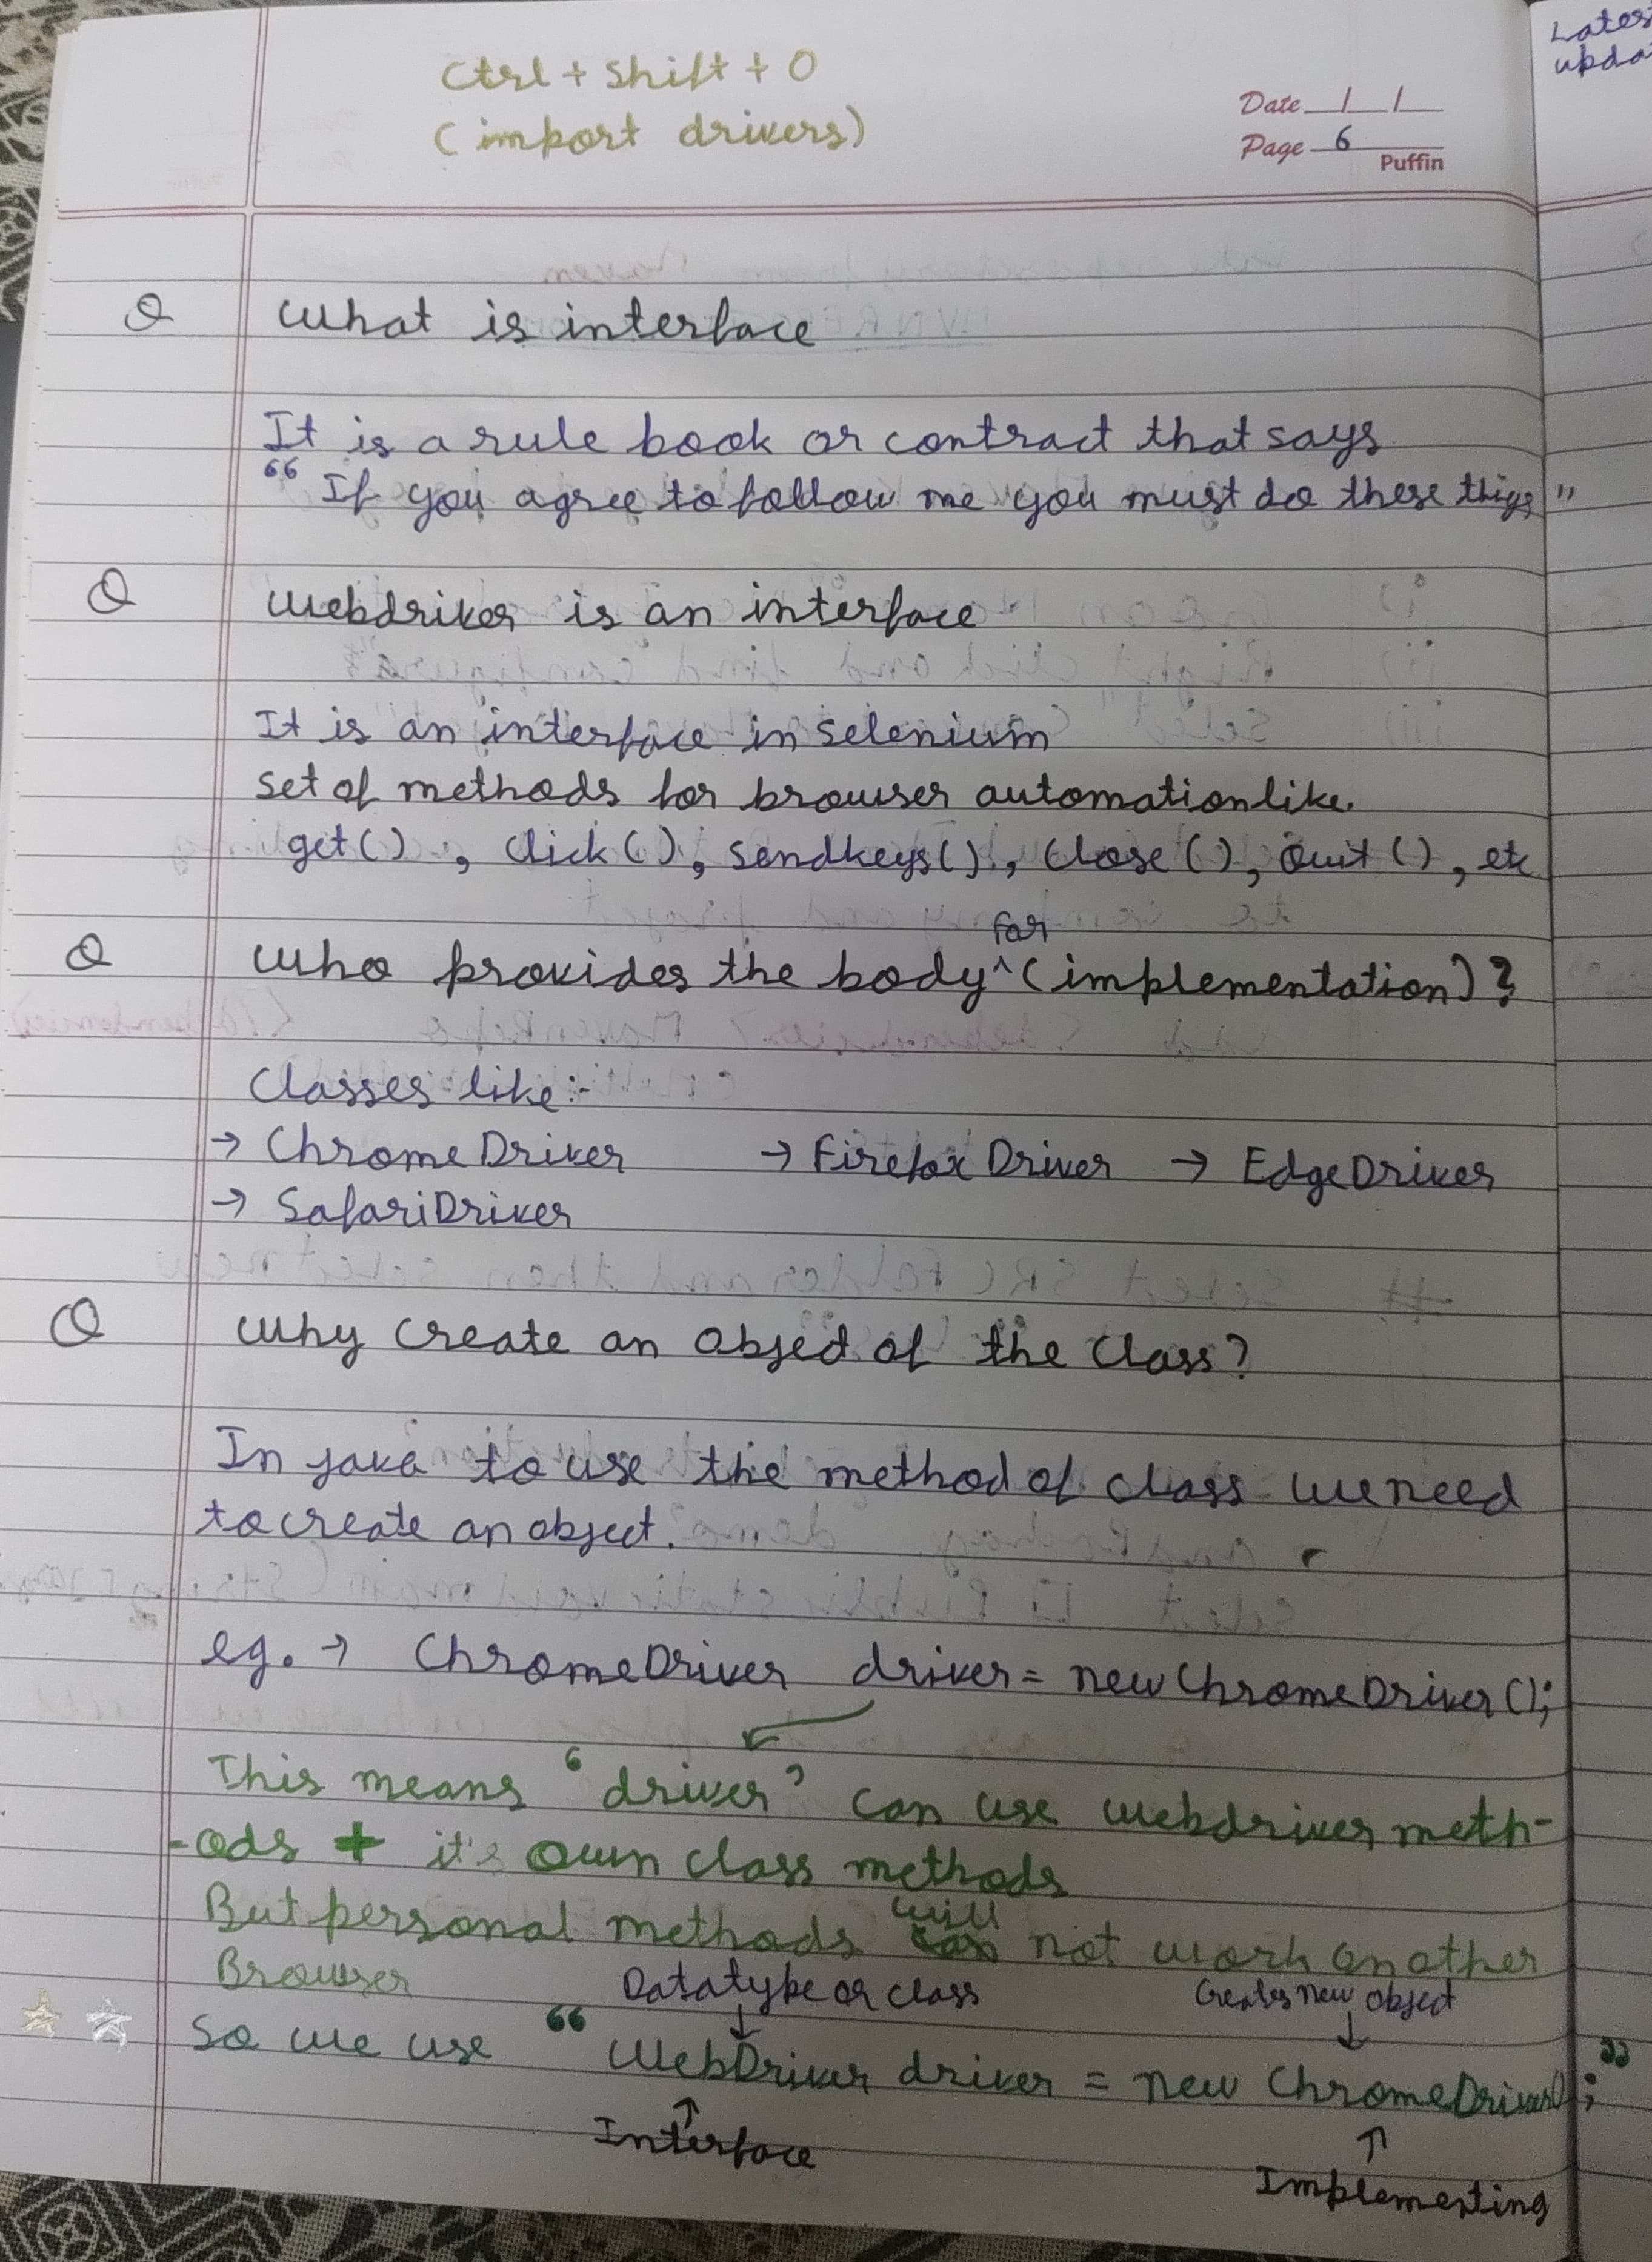 Ctrl + Shift + O
(import drivers)
Date / /
Page 6
Puffin
Lates
upda
Q What is interface
It is a rule book or contract that says
"If you agree to follow me you must do these thigs"
Q Webdriver is an interface
It is an interface in selenium
set of methods for browser automation like.
get() , Click(), sendkeys(), Close(), Quit(), etc
Q Who provides the body ^for (implementation)?
Classes like:-
→ ChromeDriver → Firefox Driver → EdgeDriver
→ SafariDriver
Q Why create an object of the class?
In java to use the method of class we need
to create an object.
eg. → ChromeDriver driver = new ChromeDriver();
This means 'driver' can use webdriver meth-
-ods + it's own class methods
But personal methods will not work on other
Browser
Datatype or class
Creates new object
So we use "WebDriver driver = new ChromeDriver();"
Interface
Implementing